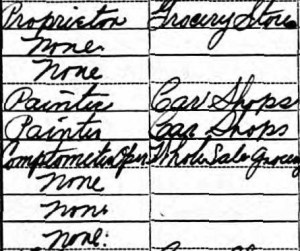 Proprietor Grocery Store
None
None
Painter Car Shops
Painter Car Shops
Comptometer Oper Whole Sale Grocery
None
None
None